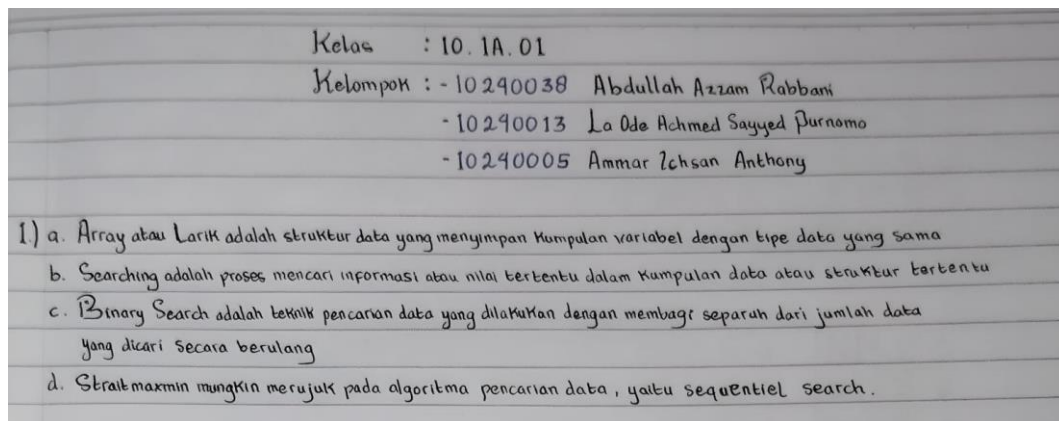 Kelas : 10.1A.01
Kelompok : - 10290038 Abdullah Azzam Rabbani
- 10290013 La Ode Achmed Sayyed Purnomo
- 10290005 Ammar Ichsan Anthony
1.) a. Array atau Larik adalah struktur data yang menyimpan kumpulan variabel dengan tipe data yang sama
b. Searching adalah proses mencari informasi atau nilai tertentu dalam kumpulan data atau struktur tertentu
c. Binary Search adalah teknik pencarian data yang dilakukan dengan membagi separuh dari jumlah data
yang dicari secara berulang
d. Straitmaxmin mungkin merujuk pada algoritma pencarian data, yaitu sequentiel search.